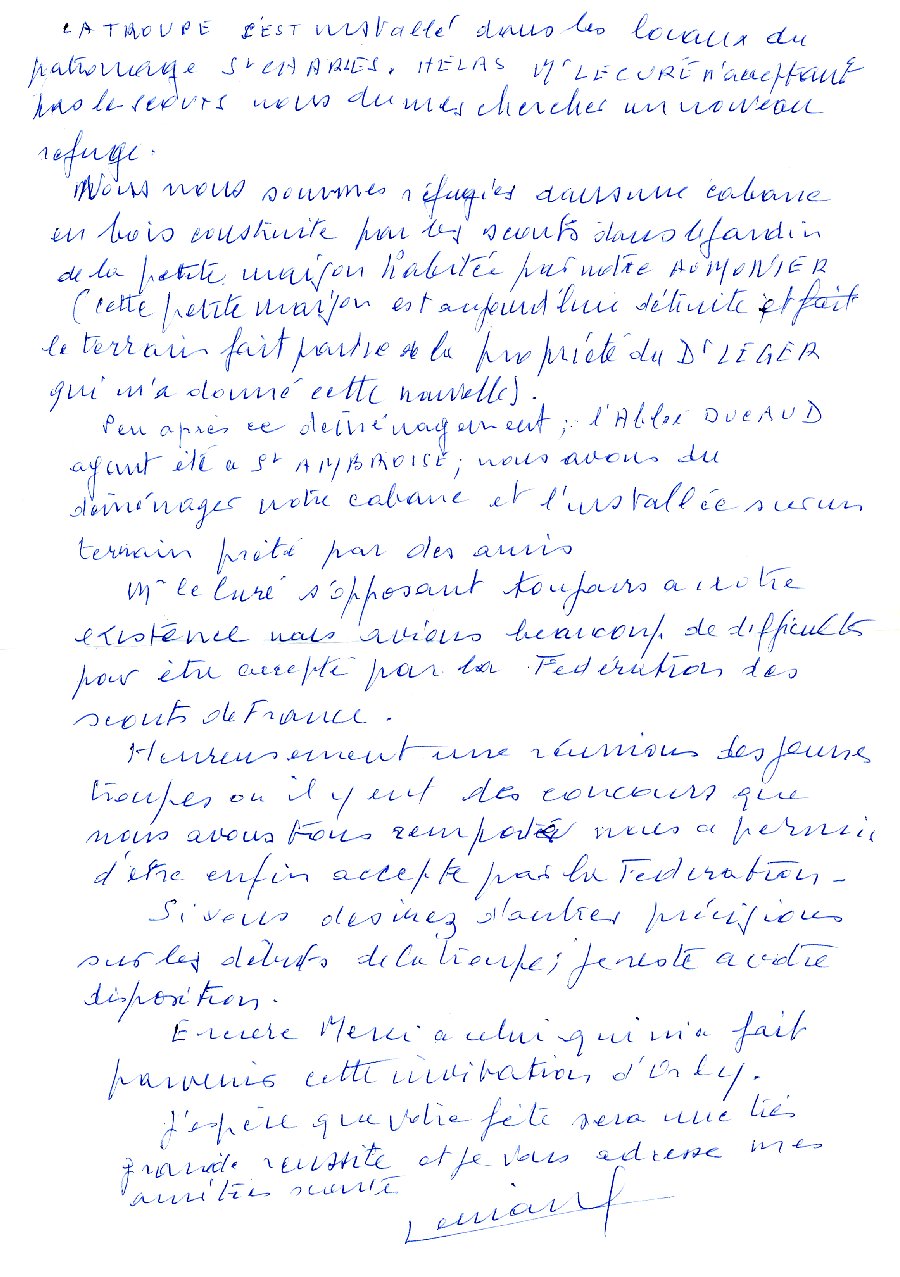 LA TROUPE s'EST installé dans les locaux du
patronage St CHARLES. HELAS Mr LE CURÉ n'acceptant
pas le scouts nous dumes chercher un nouveau
refuge.
Nous nous sommes réfugiés dans une cabane
en bois construite par les scouts dans le jardin
de la petite maison habitée par notre AUMONIER
(cette petite maison est aujourd'hui détruite et fait
le terrain fait partie de la propriété du Dr LEGER
qui m'a donné cette nouvelle).
Peu après ce deménagement; l'Abbé DUCAUD
ayant été a St AMBROISE; nous avons du
déménager notre cabane et l'installée sur un
terrain prété par des amis
Mr le Curé s'opposant toujours a notre
existence nous avions beaucoup de difficultés
pour être accepté par la Fédération des
scouts de France.
Heureusement une réunions des jeunes
troupes ou il y eut des concours que
nous avons tous remporté nous a permis
d'être enfin accepte par la Federation -
Si vous desirez d'autres précisions
sur les débuts de la troupe; je reste a votre
disposition.
Encore Merci a celui qui m'a fait
parvenir cette invitation d'Orly.
J'espère que votre fête sera une très
grande reussite et je vous adresse mes
amitiés scoute